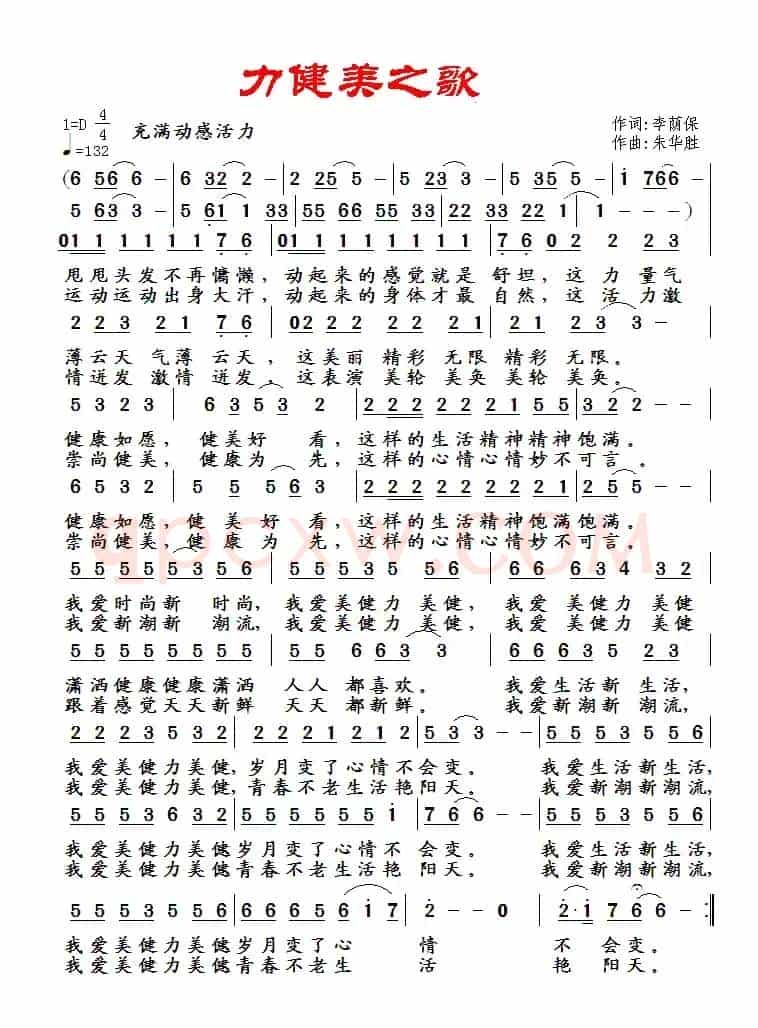 力健美之歌
1=D 4/4 充满动感活力 作词:李荫保
♩=132 作曲:朱华胜
(6 56 6 - | 6 32 2 - | 2 25 5 - | 5 23 3 - | 5 35 5 - | i 766 -
5 63 3 - | 5 61 1 33 | 55 66 55 33 | 22 33 22 1 | 1 - - )
01 1 1 1 1 1 7 6 | 01 1 1 1 1 1 1 | 7 6 02 2 23
甩甩头发不再慵懒，动起来的感觉就是 舒坦，这 力 量气
运动运动出身大汗，动起来的身体才最 自然，这 活 力激
2 2 3 2 1 7 6 | 02 2 2 2 2 2 2 1 | 2 1 5 6 3 -
薄云天 气薄 云天，这美丽 精彩 无限 精彩 无限。
情迸发 激情 迸发，这表演 美轮 美奂 美轮 美奂。
5 3 2 3 | 6 3 5 3 2 | 2 2 2 2 2 2 1 5 5 | 3 2 2 -
健康如愿， 健美好 看，这样的生活精神精神饱满。
崇尚健美， 健康为 先，这样的心情心情妙不可言。
6 5 3 2 | 5 5 5 6 3 | 2 2 2 2 2 2 2 2 1 | 2 5 5 -
健康如愿， 健 美 好 看，这样的生活精神饱满饱满。
崇尚健美， 健 康 为 先，这样的心情心情妙不可言。
qpcxw.com
5 5 5 5 5 3 5 6 | 5 5 5 3 5 5 6 | 6 6 6 3 4 3 2
我爱时尚新 时尚，我爱美健力 美健，我爱 美健力 美健
我爱新潮新 潮流，我爱美健力 美健，我爱 美健力 美健
5 5 5 5 5 5 5 5 | 6 6 6 3 3 - | 6 6 6 3 5 2 3
潇洒健康健康潇洒 人人 都喜欢。 我爱生活新 生活，
跟着感觉天天新鲜 天天 都新鲜。 我爱新潮新 潮流，
2 2 2 2 3 5 3 2 | 2 2 2 1 2 1 2 | 5 3 3 - | 5 5 5 5 5 3 5 6
我爱美健力美健，岁月变了心情不会变。 我爱生活新生活，
我爱美健力美健，青春不老生活艳阳天。 我爱新潮新潮流，
5 5 5 5 3 6 3 2 | 5 5 5 5 5 5 5 i | 7 6 6 - | 5 5 5 5 5 3 5 6
我爱美健力美健岁月变了心情不 会变。 我爱生活新生活，
我爱美健力美健青春不老生活艳 阳天。 我爱新潮新潮流，
5 5 5 5 6 5 6 | 6 6 6 5 6 i 7 | 2 - - 0 | 2· i 7 6 - :‖
我爱美健力美健岁月变了心 情 不 会变。
我爱美健力美健青春不老生 活 艳 阳天。